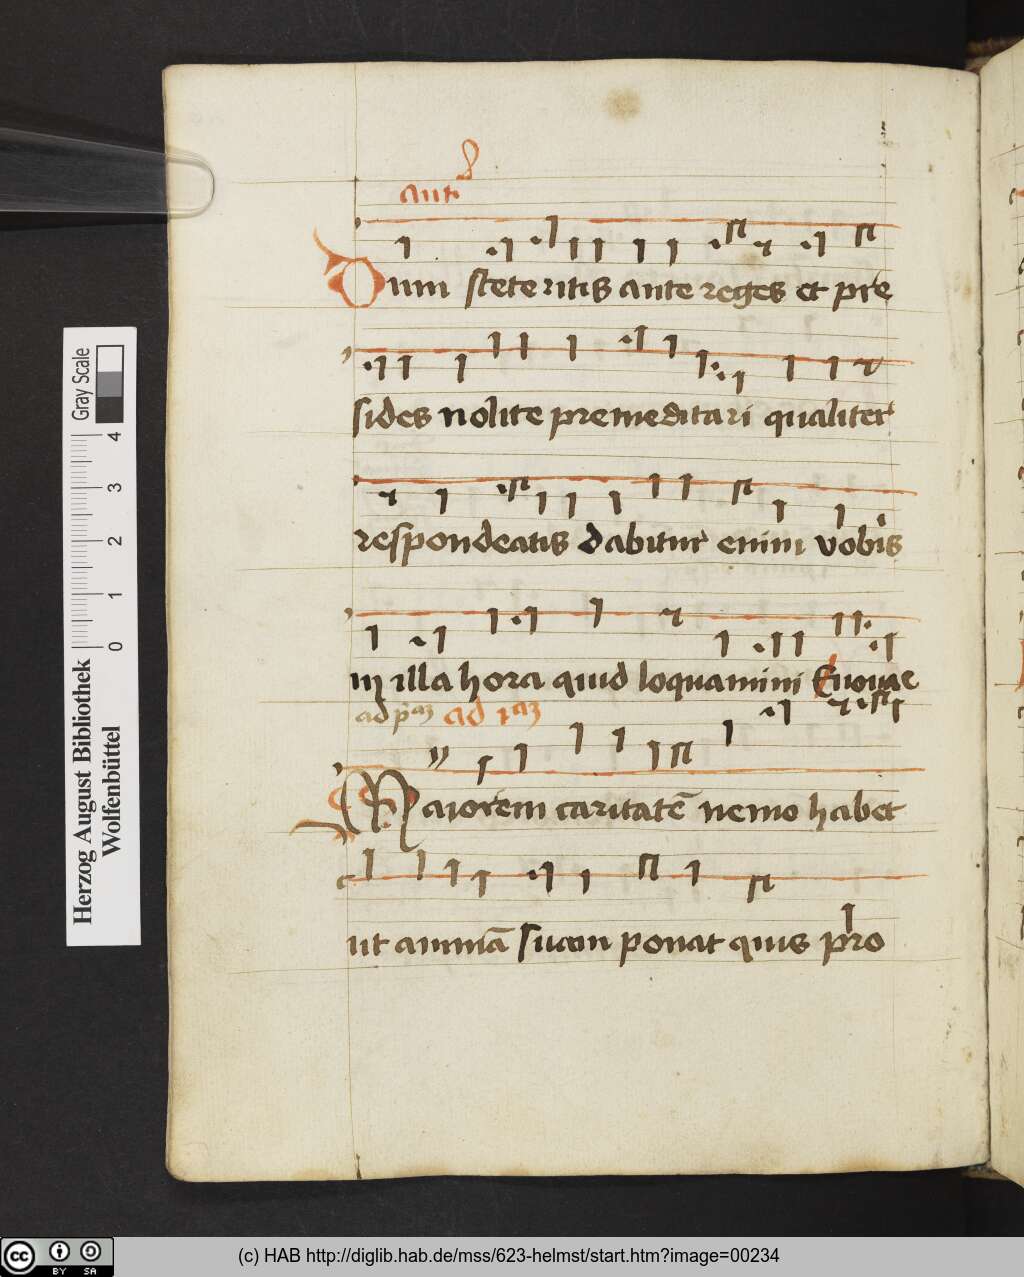 ant
Dum steteritis ante reges et pre
sides nolite premeditari qualiter
respondeatis dabitur enim vobis
in illa hora quid loquamini Euouae
ad p̄az ad
Maiorem caritatē nemo habet
ut animā suam ponat quis pro
Gray Scale
0 1 2 3 4
Herzog August Bibliothek
Wolfenbüttel
cc BY SA
(c) HAB http://diglib.hab.de/mss/623-helmst/start.htm?image=00234